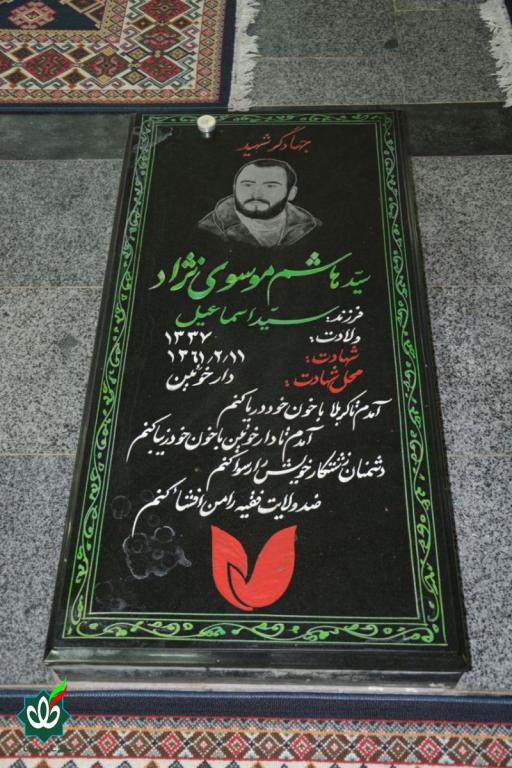 جهادگر شهید
سیّد هاشم موسوی نژاد
فرزند: سیّد اسماعیل
ولادت: ۱۳۳۷
شهادت: ۱۳۶۱/۲/۱۱
محل شهادت: دارخوئین
آمدم تا کربلا با خون خود دریا کنم
آمدم تا دارخوئین با خون خود زیبا کنم
دشمنان زشتکار خویش را رسوا کنم
ضد ولایت فقیه را من افشاء کنم